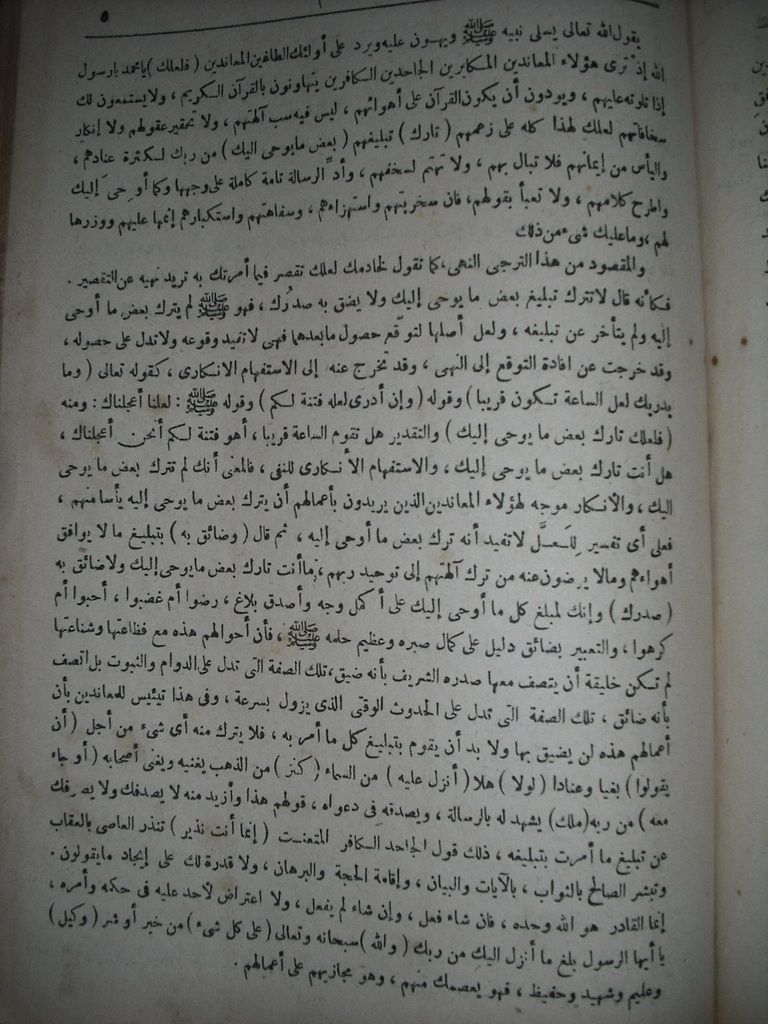 ٥
يقول الله تعالى يسلى نبيه ﷺ ويهون عليه ويرد على أولئك الطاغين المعاندين ( فلعلك ) يا محمد يا رسول
الله إذ ترى هؤلاء المعاندين المكابرين الجاحدين الكافرين يتهاونون بالقرآن الكريم ، ولا يستمعون لك
إذا تلوته عليهم ، ويودون أن يكون القرآن على أهوائهم ، ليس فيه سب آلهتهم ، ولا تحقير عقولهم ولا إنكار
سخافاتهم لعلك لهذا كله على زعمهم ( تارك ) تبليغهم ( بعض ما يوحى اليك ) من ربك لكثرة عنادهم ،
واليأس من إيمانهم فلا تبال بهم ، ولا تهتم لسخفهم ، وأد الرسالة تامة كاملة على وجهها وكما أوحى إليك
واطرح كلامهم ، ولا تعبأ بقولهم ، فان سخريتهم واستهزاءهم ، وسفاهتهم واستكبارهم إنمها عليهم ووزرها
لهم ، وما عليك شىء من ذلك
والمقصود من هذا الترجى النهى ، كما تقول لخادمك لعلك تقصر فيما أمرتك به تريد نهيه عن التقصير .
فكأنه قال لا تترك تبليغ بعض ما يوحى إليك ولا يضق به صدرك ، فهو ﷺ لم يترك بعض ما أوحى
إليه ولم يتأخر عن تبليغه ، ولعل أصلها لتوقع حصول ما بعدها فهى لا تفيد وقوعه ولا تدل على حصوله ،
وقد خرجت عن افادة التوقع إلى النهى ، وقد تخرج عنه إلى الاستفهام الانكارى ، كقوله تعالى ( وما
يدريك لعل الساعة تكون قريبا ) وقوله ( وإن أدرى لعله فتنة لكم ) وقوله ﷺ : لعلنا أعجلناك : ومنه
( فلعلك تارك بعض ما يوحى إليك ) والتقدير هل تقوم الساعة قريبا ، أهو فتنة لكم أنحن أعجلناك ،
هل أنت تارك بعض ما يوحى إليك ، والاستفهام الأنكارى للنفى ، فالمعنى أنك لم تترك بعض ما يوحى
اليك ، والأنكار موجه لهؤلاء المعاندين الذين يريدون بأعمالهم أن يترك بعض ما يوحى إليه يأسا منهم ،
فعلى أى تفسير لِلَعَلَّ لا تفيد أنه ترك بعض ما أوحى إليه ، ثم قال ( وضائق به ) بتبليغ ما لا يوافق
أهواءهم ومالا يرضون عنه من ترك آلهتهم إلى توحيد ربهم ، ما أنت تارك بعض ما يوحى إليك ولا ضائق به
( صدرك ) وإنك لمبلغ كل ما أوحى إليك على أكمل وجه وأصدق بلاغ ، رضوا أم غضبوا ، أحبوا أم
كرهوا ، والتعبير بضائق دليل على كمال صبره وعظيم حلمه ﷺ ، فأن أحوالهم هذه مع فظاعتها وشناعتها
لم تكن خليقة أن يتصف معها صدره الشريف بأنه ضيق ، تلك الصفة التى تدل على الدوام والثبوت بل اتصف
بأنه ضائق ، تلك الصفة التى تدل على الحدوث الوقتى الذى يزول بسرعة ، وفى هذا تيئيس للمعاندين بأن
أعمالهم هذه لن يضيق بها ولا بد أن يقوم بتبليغ كل ما أمر به ، فلا يترك منه أى شىء من أجل ( أن
يقولوا ) بغيا وعنادا ( لولا ) هلا ( أنزل عليه ) من السماء ( كنز ) من الذهب يغنيه ويغنى أصحابه ( أو جاء
معه ) من ربه ( ملك ) يشهد له بالرسالة ، ويصدقه فى دعواه ، قولهم هذا وأزيد منه لا يصدفك ولا يصرفك
عن تبليغ ما أمرت بتبليغه ، ذلك قول الجاحد الكافر المتعنت ( إنما أنت نذير ) تنذر العاصى بالعقاب
وتبشر الصالح بالثواب ، بالآيات والبيان ، وإقامة الحجة والبرهان ، ولا قدرة لك على إيجاد ما يقولون .
إنما القادر هو الله وحده ، فان شاء فعل ، وإن شاء لم يفعل ، ولا اعتراض لأحد عليه فى حكمه وأمره ،
يا أيها الرسول بلغ ما أنزل اليك من ربك ( والله ) سبحانه وتعالى ( على كل شىء ) من خير أو شر ( وكيل )
وعليم وشهيد وحفيظ ، فهو يعصمك منهم ، وهو مجازيهم على أعمالهم .